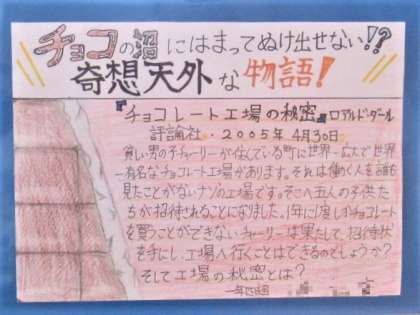 チョコの沼にはまってぬけ出せない!?
奇想天外な物語!
『チョコレート工場の秘密』ロアルド・ダール
評論社・2005年4月30日
貧しい男の子チャーリーが住んでいる町に世界一広大で世界
一有名なチョコレート工場があります。それは働く人を誰も
見たことがないナゾの工場です。そこへ五人の子供た
ちが招待されることになりました。1年に1度しかチョコレート
を買うことができないチャーリーは果たして、招待状
を手にし、工場へ行くことはできるのでしょうか?
そして工場の秘密とは?
一年四組